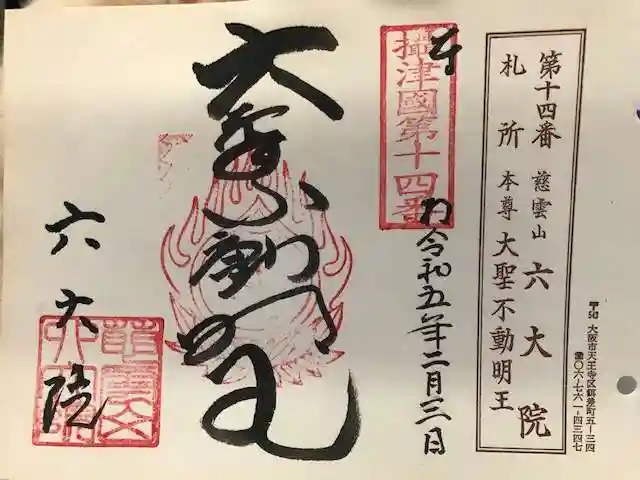 第十四番 慈雲山 六大院
札所 本尊 大聖不動明王
大阪市天王寺区餌差町五-三四
☎〇六-七六一-四三四七
攝津國第十四番
令和五年二月三日
大聖不動明王
六大院